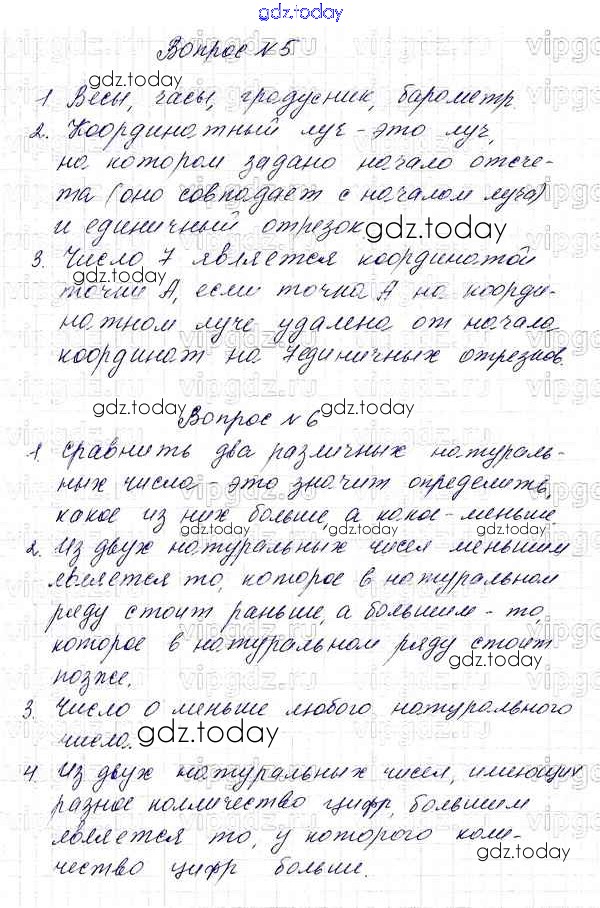 gdz.today
Вопрос №5
1 Весы, часы, градусник, барометр
2. Координатный луч - это луч,
на котором задано начало отсче-
та (оно совпадает с началом луча)
и единичный отрезок
3. Число 7 является координатой
точки А, если точка А на коорди-
натном луче удалена от начала
координат на 7 единичных отрезков.
Вопрос №6
1. Сравнить два различных натураль-
ных числа - это значит определить,
какое из них больше, а какое - меньше
2. Из двух натуральных чисел меньшим
является то, которое в натуральном
ряду стоит раньше, а большим - то,
которое в натуральном ряду стоит
позже.
3. Число 0 меньше любого натурального
числа.
4. Из двух натуральных чисел, имеющих
разное колличество цифр, большим
является то, у которого коли-
чество цифр больше.